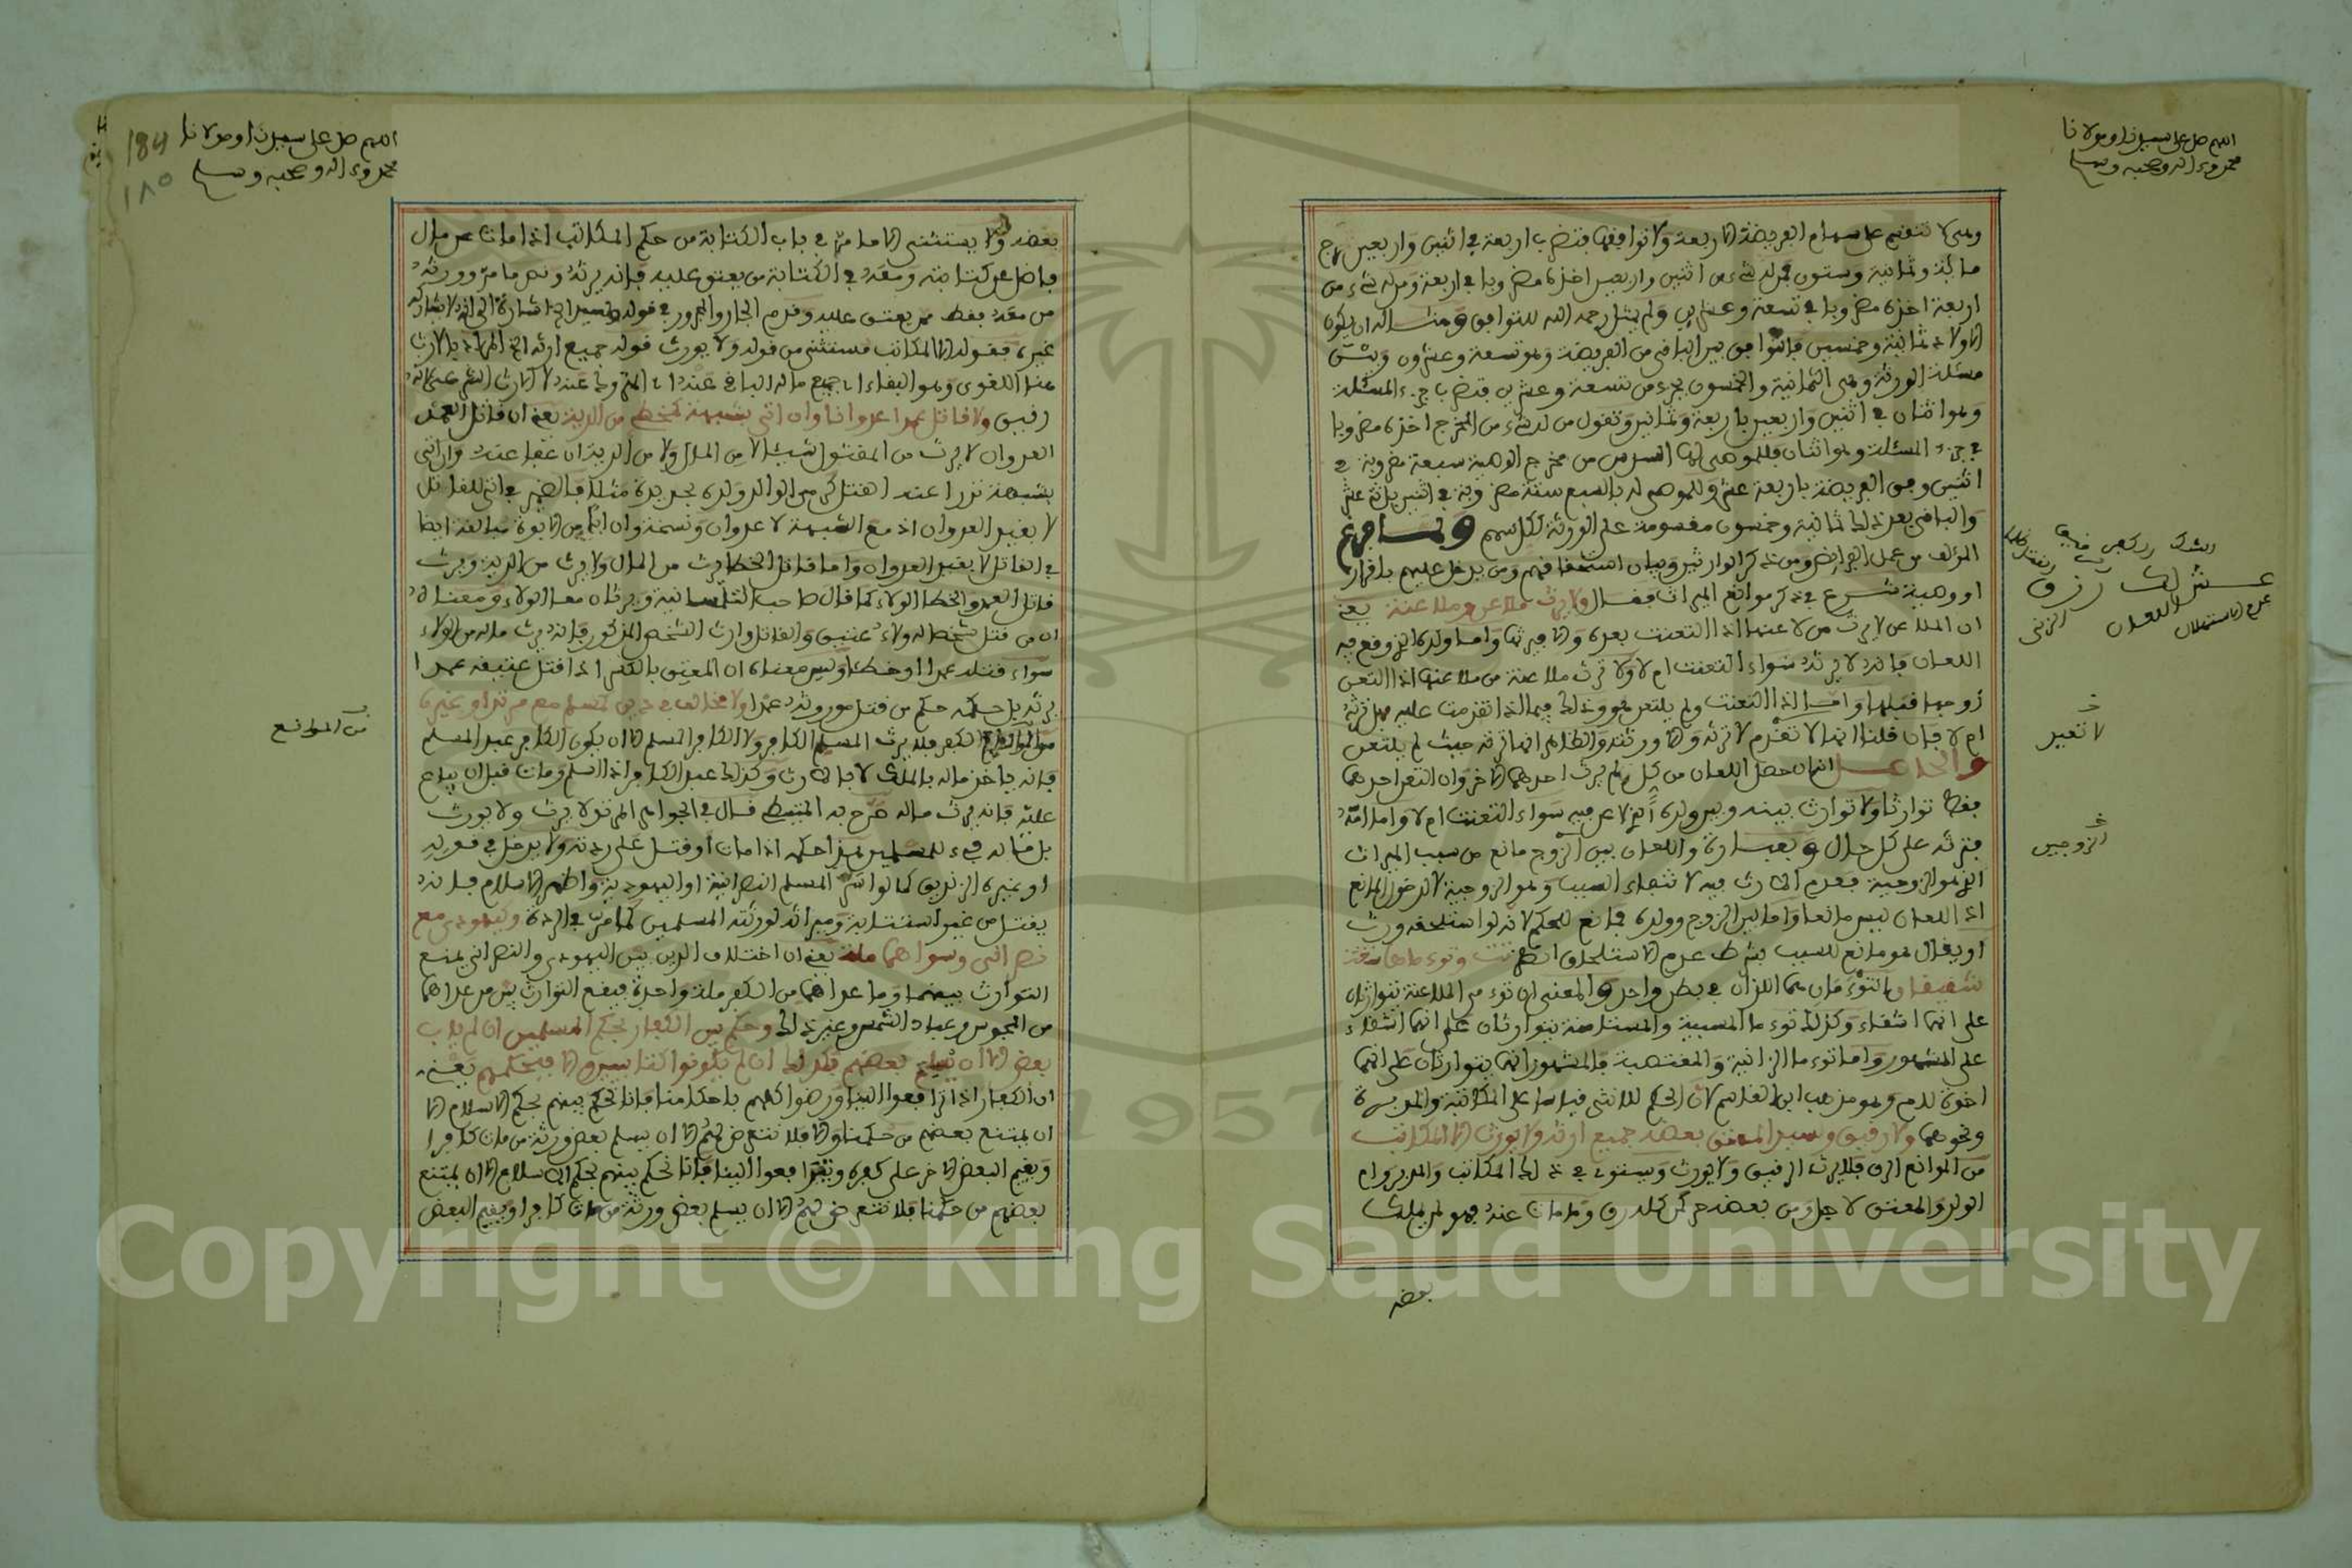 اللهم صل على سيدنا ومولانا
محمد وءاله وصحبه وسلم
وهى لا تنقسم على سهام الفريضة الاربعة ولا توافقها فتضرب اربعة في اثنين واربعين تخرج
مائة وثمانية وستون فمن له شىء من اثنين واربعين اخذه مضروبا في اربعة ومن له شىء من
اربعة اخذه مضروبا في تسعة وعشرين ولم يمثل رحمه الله للتوافق ومثاله ان يكون
الاولاد ثمانية وخمسين فالتوافق بين الباقى من الفريضة وهو تسعة وعشرون وبين
مسئلة الورثة وهى الثمانية والخمسون بجزء من تسعة وعشرين فتضرب جزء المسئلة
وهو اثنان في اثنين واربعين باربعة وثمانين وتقول من له شىء من المخرج اخذه مضروبا
في جزء المسئلة وهو اثنان فللموصى له السدس من مخرج الوصية سبعة مضروبة في
اثنين وفق الفريضة باربعة عشر وللموصى له بالسبع ستة مضروبة في اثنين باثنى عشر
والباقى بعد ذلك ثمانية وخمسون مقسومة على الورثة لكل سهم ولما فرغ
المؤلف من عمل الفرائض ومن ذكر الوارثين وبيان استحقاقهم ومن يدخل عليهم باقرار
او وصية شرع في ذكر موانع الميراث فقال ولا يرث ملاعن وملاعنة يعنى
ان الملاعن لا يرث من لاعنها اذا التعنت بعده والا فيرثها واما ولده الذي وقع فيه
اللعان فانه لا يرثه سواء التعنت ام لا ولا ترث ملاعنة من ملاعنها اذا التعن
زوجها قبلها واما اذا التعنت ولم يلتعن هو وذلك فيما اذا تقدمت عليه فهل ترثه
ام لا فان قلنا انها لا تقدم لا ترثه والا ورثته والظاهر انها ترثه حيث لم يلتعن
والحاصل انه ان حصل اللعان من كل لم يرث احدهما الاخر وان التعن احدهما
فقط توارثا ولا توارث بينه وبين ولده الذى لاعن فيه سواء التعنت ام لا واما امه
فترثه على كل حال وبعبارة واللعان بين الزوج مانع من سبب الميراث
الذى هو الزوجية فعدم الارث فيه لانتفاء السبب وهو الزوجية لا لدخول المانع
اذ اللعان ليس مانعا واما بين الزوج وولده فمانع للحكم لانه لو استلحقه ورث
او يقال هو مانع للسبب بشرط عدم الاستلحاق انظر تت وتوءماها
شقيقان التوءمان هما اللذان في بطن واحد والمعنى ان توءمى الملاعنة يتوارثان
على انهما اشقاء وكذلك توءما المسبية والمستامنة يتوارثان على انهما اشقاء
على المشهور واما توءما الزانية والمغتصبة فالمشهور انهما يتوارثان على انهما
اخوة لام وهو مذهب ابن القاسم
ونحوهما ولا رقيق ولسيد المعتق بعضه جميع ارثه ولا يورث الا المكاتب
من الموانع الرق فلا يرث الرقيق ولا يورث ويستوى في ذلك المكاتب والمدبر وام
الولد والمعتق لاجل ومن بعضه حر كمن كله رق وما مات عنه فهو لمن يملك
بعضه
لا تعبير
الزوجين
عش لك رزق
اللهم صل على سيدنا ومولانا
محمد وءاله وصحبه وسلم
184
١٨٥
بعضه ولا يستثنى الا ما مر في باب الكتابة من حكم المكاتب اذا مات عن مال
فاضل عن كتابته ومعه في الكتابة من يعتق عليه فانه يرثه ونص ما مر وورثه
من معه فقط ممن يعتق عليه وقدم الجار والمجرور في قوله ولسيد الخ اشارة الى انه لا يشاركه
غيره فقوله الا المكاتب مستثنى من قوله ولا يورث قوله جميع ارثه الخ المراد بالارث
هنا اللغوى وهو البقاء اى جميع ماله الباقى عنده
رقيق ولا قاتل عمدا عدوانا وان اتى بشبهة كمخطئ من الدية يعنى ان قاتل العمد
العدوان لا يرث من المقتول شيئا لا من المال ولا من الدية ان عفا عنه وان اتى
بشبهة تدرا عنه القتل كرمى الوالد ولده بحديدة مثلا فالضمير في اتى للقاتل
لا بقيد العدوان اذ مع الشبهة لا عدوان
في القاتل لا بقيد العدوان واما قاتل الخطا فيرث من المال ولا يرث من الدية ويرث
قاتل العمد والخطا الولاء كما قال صاحب التلمسانية ويرثان معا الولاء ومعناه
ان من قتل شخصا له ولاء عتيق والقاتل وارث الشخص المذكور فانه يرث ماله من الولاء
سواء قتله عمدا او خطا وليس معناه ان المعتق بالكسر اذا قتل عتيقه عمدا
يرثه بل حكمه حكم من قتل موروثه عمدا ولا مخالف في دين كمسلم مع مرتد او غيره
من الموانع الكفر فلا يرث المسلم الكافر ولا الكافر المسلم الا ان يكون الكافر عبد المسلم
فانه ياخذ ماله بالملك لا بالارث وكذلك عبد الكافر اذا اسلم ومات قبل ان يباع
عليه فانه يرث ماله صرح به المتيطى قال في الجواهر المرتد لا يرث ولا يورث
بل ماله فىء للمسلمين هذا حكمه اذا مات او قتل على ردته ولا يدخل في قوله
او غيره الزنديق كما لو اسر المسلم النصرانية او اليهودية واظهر الاسلام فانه
يقتل من غير استتابة وميراثه لورثته المسلمين كما مر في الردة وكيهودى مع
نصرانى وسواهما ملة يعنى ان اختلاف الدين بين اليهودى والنصرانى يمنع
التوارث بينهما وما عداهما من الكفر ملة واحدة فيقع التوارث بين من عداهما
من المجوس وعباد الشمس وغير ذلك وحكم بين الكفار بحكم المسلمين ان لم ياب
بعض الا ان يسلم بعضهم فكذلك ان لم يكونوا كتابيين والا فبحكمهم يعنى
ان الكفار اذا ترافعوا الينا ورضوا كلهم باحكامنا فانا نحكم بينهم بحكم الاسلام الا
ان يمتنع بعضهم من حكمنا والا فلا نتعرض لهم الا ان يسلم بعض ورثة من مات كافرا
ويقيم البعض الاخر على كفره وترافعوا الينا فانا نحكم بينهم بحكم الاسلام الا ان يمتنع
بعضهم من حكمنا فلا نتعرض لهم الا ان يسلم بعض ورثة من مات كافرا ويقيم البعض
من الموانع
1957
Copyright © King Saud University